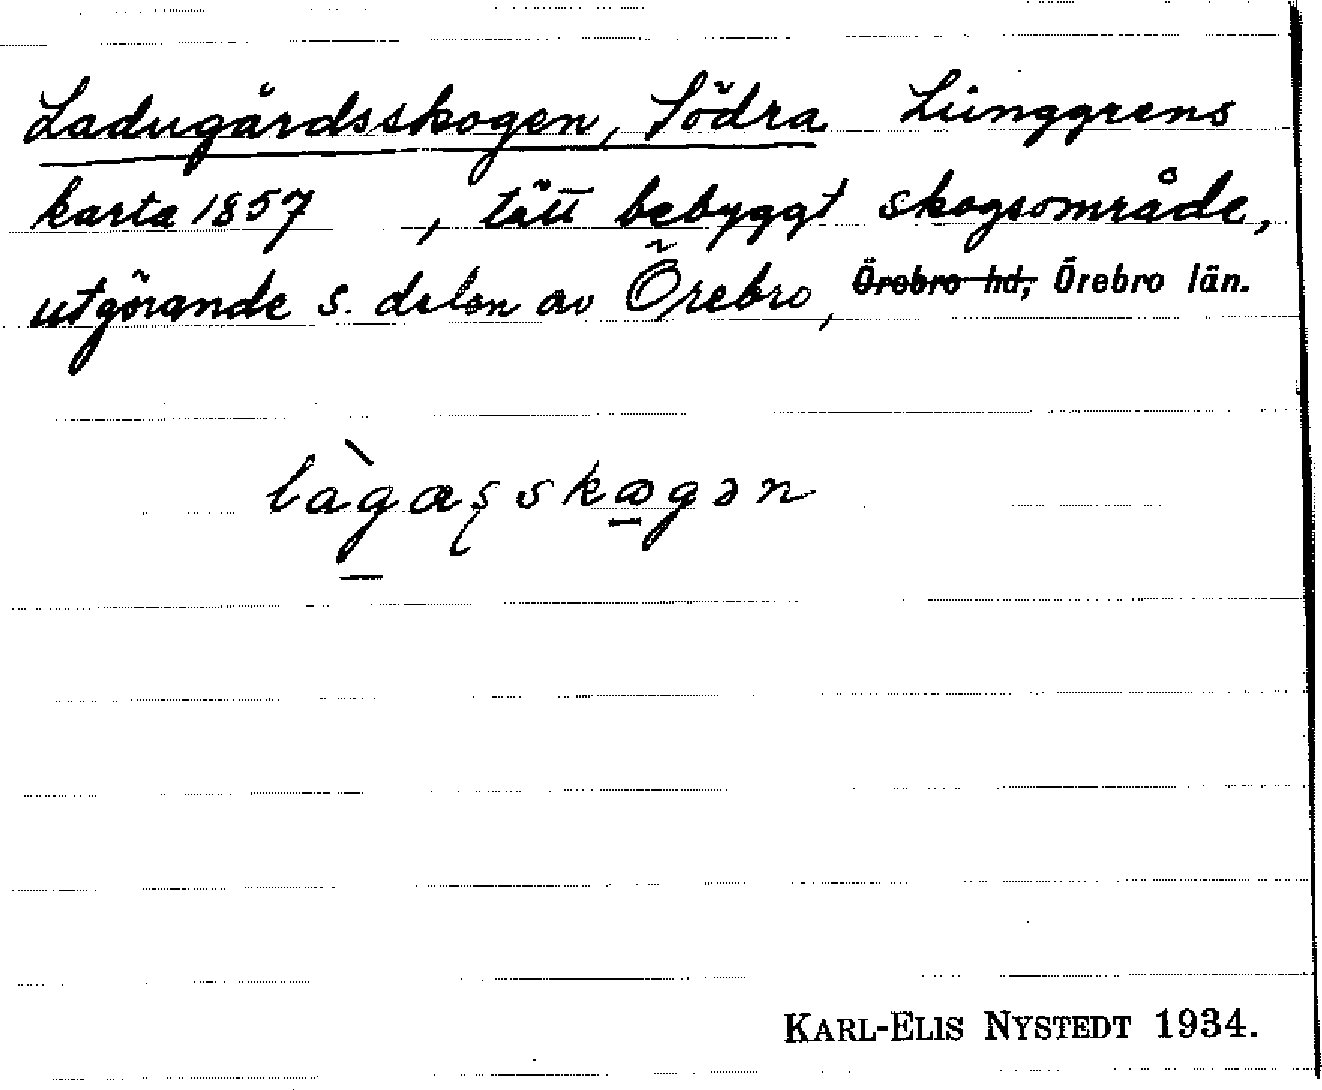 Ladugårdsskogen, Södra Ljunggrens
karta 1857 , tätt bebyggt skogsområde,
utgörande s. delen av Örebro, ~~Örebro hd,~~ Örebro län.
làgaʂskogən
KARL-ELIS NYSTEDT 1934.